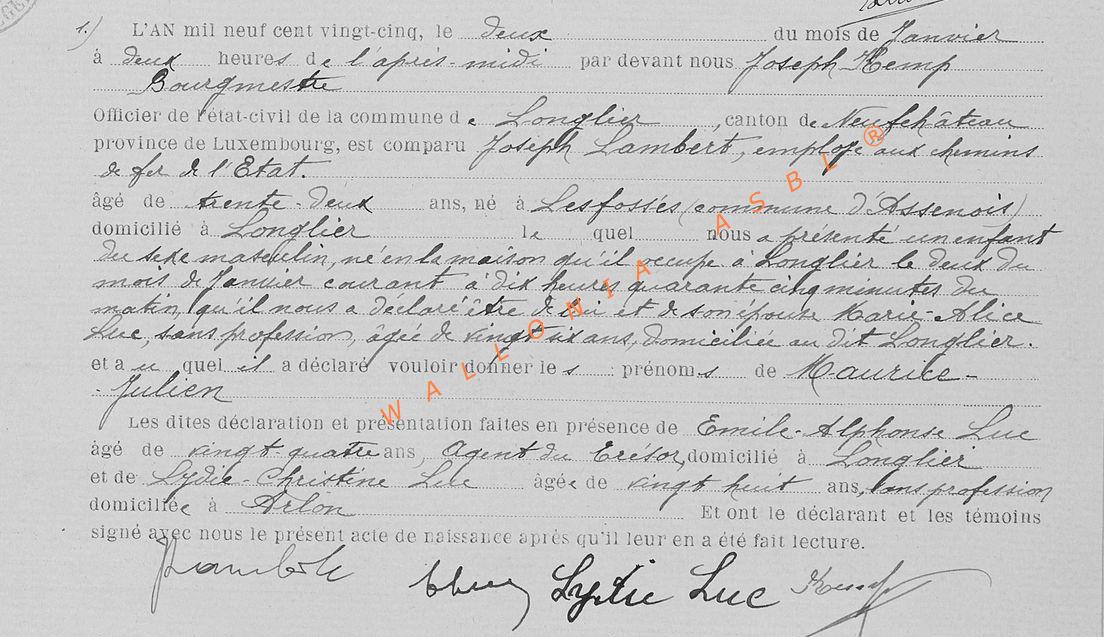 1.) L'AN mil neuf cent vingt-cinq, le deux du mois de Janvier
à deux heures de l'après-midi par devant nous Joseph Kemp
Bourgmestre
Officier de l'état-civil de la commune de Longlier, canton de Neufchâteau
province de Luxembourg, est comparu Joseph Lambert, employé aux chemins
de fer de l'Etat.
âgé de trente-deux ans, né à Lesfossés (commune d'Assenois)
domicilié à Longlier le quel nous a présenté un enfant
du sexe masculin, né en la maison qu'il occupe à Longlier le deux du
mois de Janvier courant à dix heures quarante cinq minutes du
matin, qu'il nous a déclaré être de lui et de son épouse Marie-Alice
Luc, sans profession, âgée de vingt six ans, domiciliée au dit Longlier.
et au quel il a déclaré vouloir donner les prénoms de Maurice-
-Julien
Les dites déclaration et présentation faites en présence de Emile-Alphonse Luc
âgé de vingt-quatre ans, Agent du Trésor, domicilié à Longlier
et de Lydie-Christine Luc âgée de vingt huit ans, sans profession
domiciliée à Arlon Et ont le déclarant et les témoins
signé avec nous le présent acte de naissance après qu'il leur en a été fait lecture.
Lydie Luc
WALLONIA ASBL ®